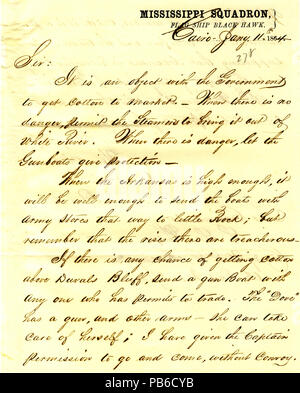 MISSISSIPPI SQUADRON,
FLAG SHIP BLACK HAWK.
Cairo Jany. 11. 1864.
278
Sir:
It is an object with the Government
to get Cotton to market - When there is no
danger, permit the Steamers to bring it out of
White River. When there is danger, let the
Gunboats give protection -
When the Arkansas is high enough, it
will be well enough to send the boats with
army stores that way to Little Rock; but
remember that the rises there are treacherous.
If there is any chance of getting cotton
above Duvals Bluff, send a gun Boat with
any one who has permits to trade. The "Dove"
has a gun, and other arms - she can take
care of herself; I have given the Captain
permission to go and come, without Convoy.
alamy
Image ID: PB6CYB
www.alamy.com